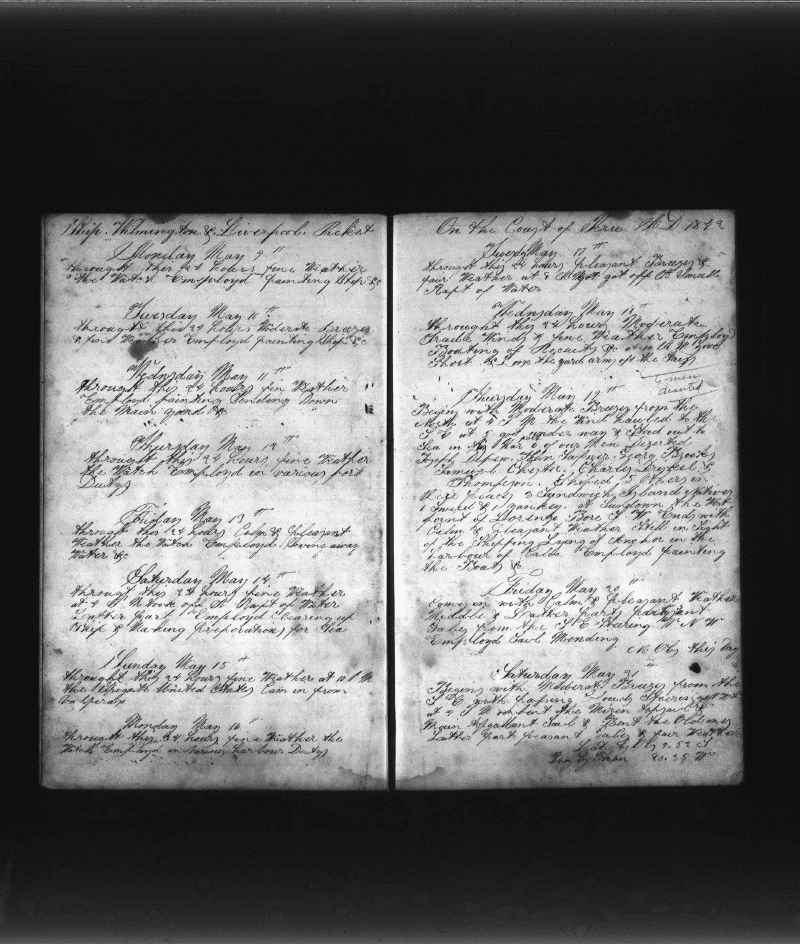 Ship Wilmington & Liverpool Packet
Monday May 9th
throught this 24 hours fine Weather
the Watch Employd painting Ship &c
Tuesday May 10th
throught this 24 hours Moderate Breezes
& fair Weather Employd painting Ship &c
Wednsday May 11th
throught this 24 hours fin Wather
Employd painting Sending Down
the Main yard &c
Thursday May 12th
throught this 24 hours fine Weather
the Watch Employd in various port
Dutys
Friday May 13th
throught this 24 hours Calm & pleasant
Weather the Watch Employd Stoing away
Water &c
Saturday May 14th
throught this 24 hours fine Weather
at 4 P. M took off A Raft of Water
Latter part Employd Clearing up
Ship & Making preporations for Sea
Sunday May 15th
throught this 24 hours fine Weather at 10 A M
the Frigate United States Cam in from
Monday May 16th
throught this 24 hours fine Weather the
Watch Employd in Various harbour Dutys
On the Coast of Peru AD 1842
Tuesday May 17th
throught this 24 hours pleasant Breezes &
fair Weather at got off A Small
Raft of Water
Wednsday May 18th
throught this 24 hours Moderate
Winds & fine Weather Employd
Boating of Recruits &c at 10 A M
Short & Loos the yard arms of the
6 men
deserted
Thursday May 19th
Begins with Moderate Breezes from the
at 4 P M the Wind hawled to the
S E at 5 got under way & Stud out to
Sea 6 of our Men Deserted
John
Samuel Chester, Charles &
Thompson. Shiped 5 Others in
thire places 3 Sandwich Islands natives
1 & 1 yankey. at Sundown the West
point of Lorenzo Bore Ends with
Calm & pleasant Weather Still in Sight
of the Shipping Lying at Anchor in the
harbour of Employd painting
the Boats &c
Friday May 20th
Comes in with Calm & pleasant Weather
Middle & Latter parts pleasant
Gales from the S E Stearing N W
Employd Sail Mending
No Obs this Day
Saturday May 21st
Begins with Moderate Breezes from the
S E with passing Clouds Stearing
at 4 P M the Mizen topsail &
Main topgallant Sail & Bent the Old ones
Latter part pleasant Gales & fair Weather
Lat by Obs
Long by